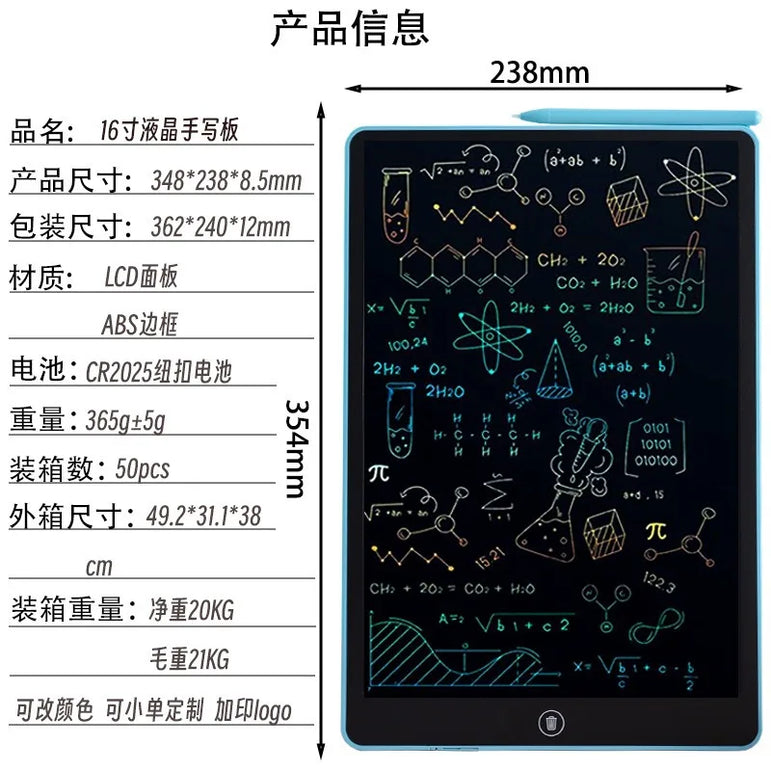 产品信息
238mm
品名: 16寸液晶手写板
产品尺寸: 348*238*8.5mm
包装尺寸: 362*240*12mm
材质: LCD面板
ABS边框
电池: CR2025纽扣电池
重量: 365g±5g
装箱数: 50pcs
外箱尺寸: 49.2*31.1*38
cm
装箱重量: 净重20KG
毛重21KG
可改颜色 可小单定制 加印logo
354mm
√2 +an = an
(a²+ab + b²)
CH₂ + 2O₂
CO₂ + H₂O
2H₂ + O₂ = 2H₂O
100,24
1010,0
a³ - b³
2H₂ + O₂
2H₂O
(a²+ab + b²)
(a+b)
H-C-C-C-H
0101
10101
010100
π
a+d , 15
√2 +an = an
15,21
π
122,3
CH₂ + 2O₂ = CO₂ + H₂O
A=₂ √b i + c 2